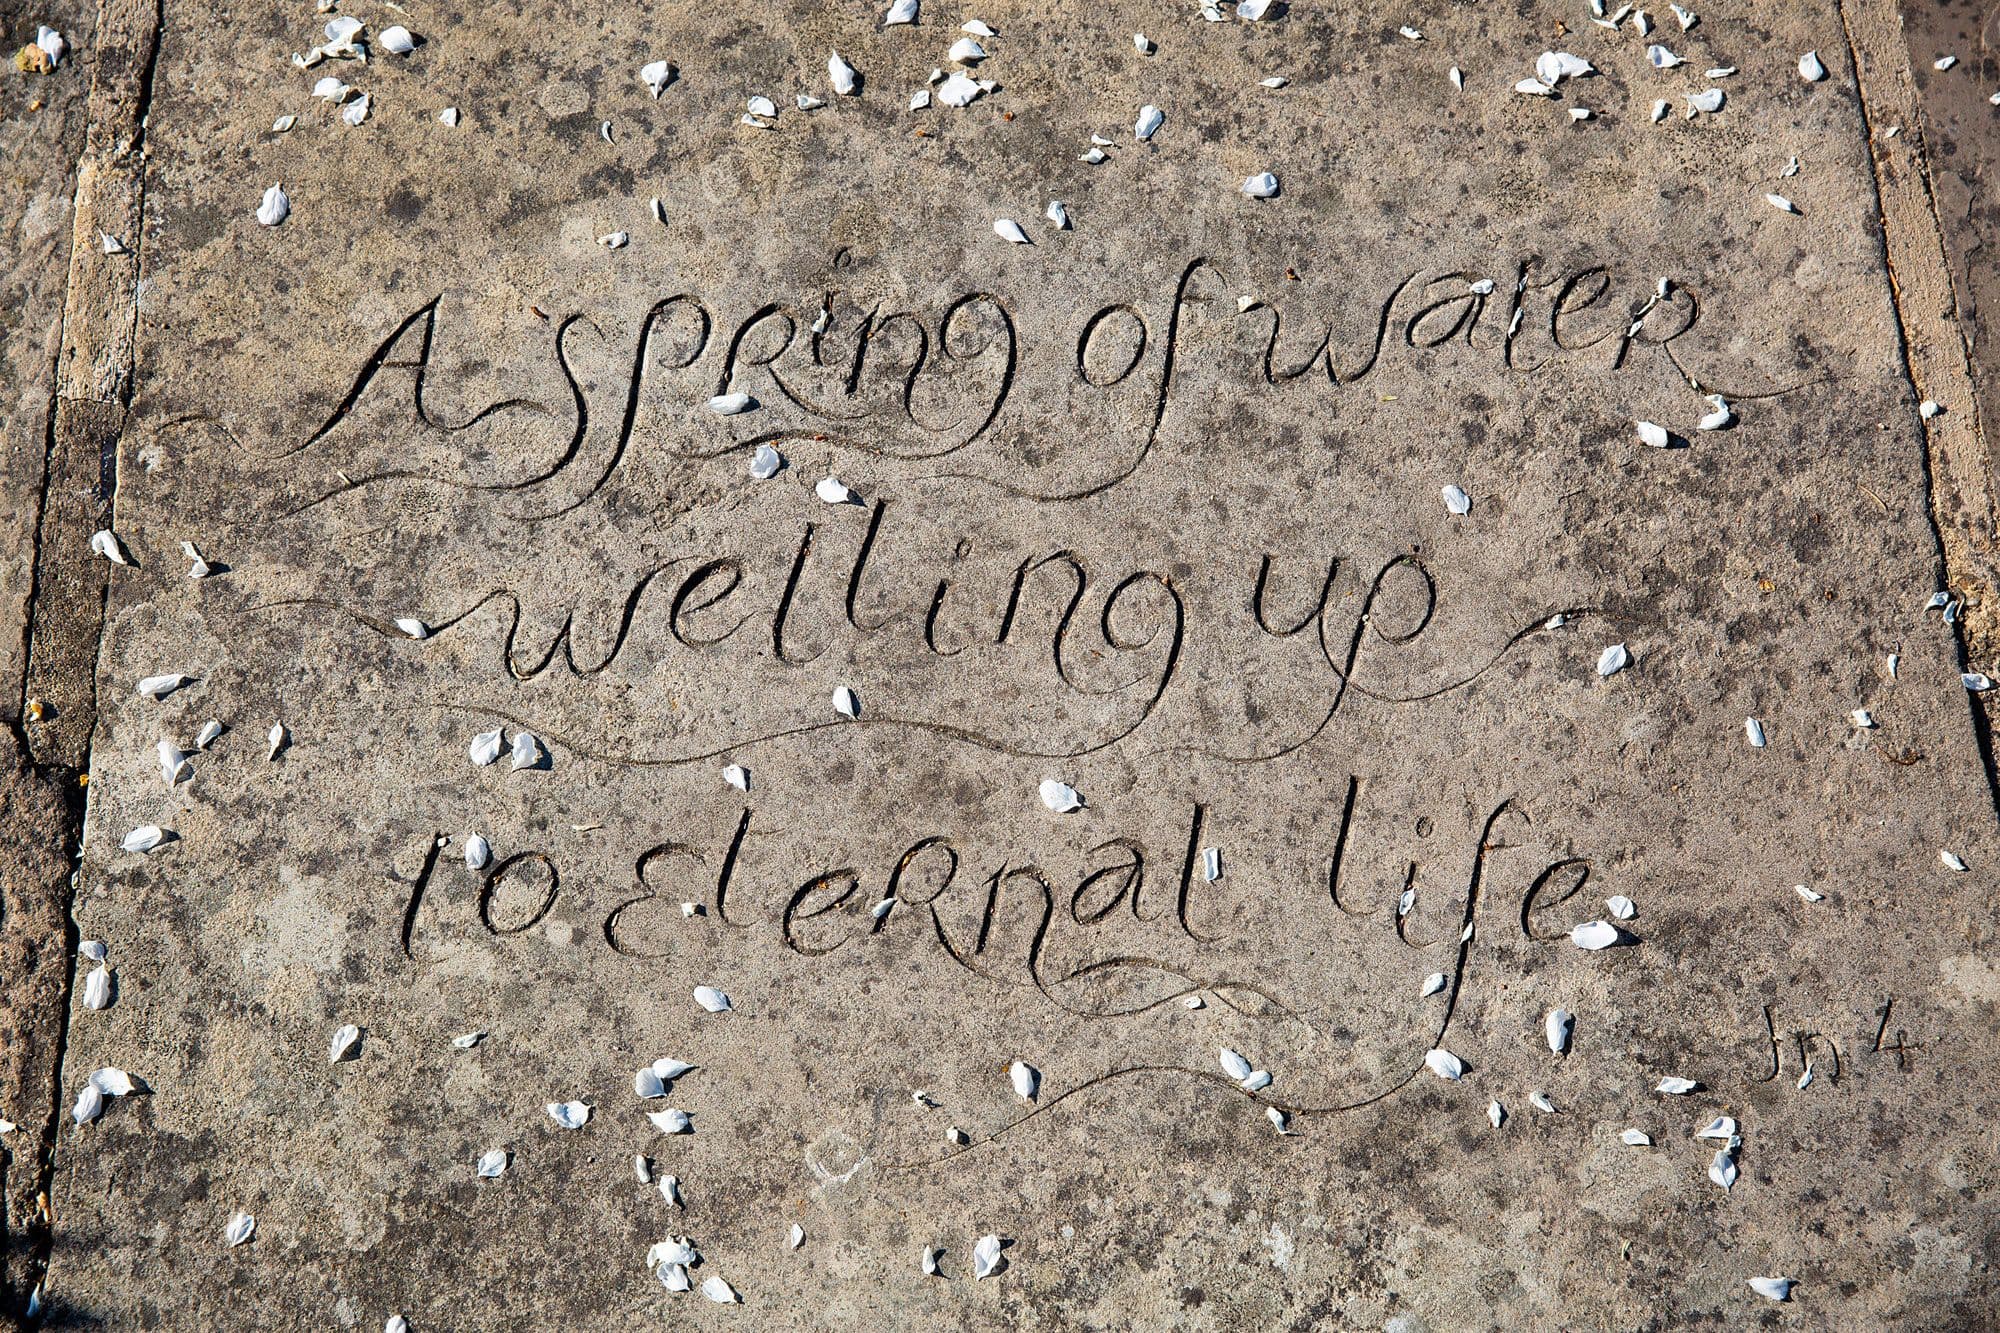 A spring of water
welling up
to Eternal life
Jn 4